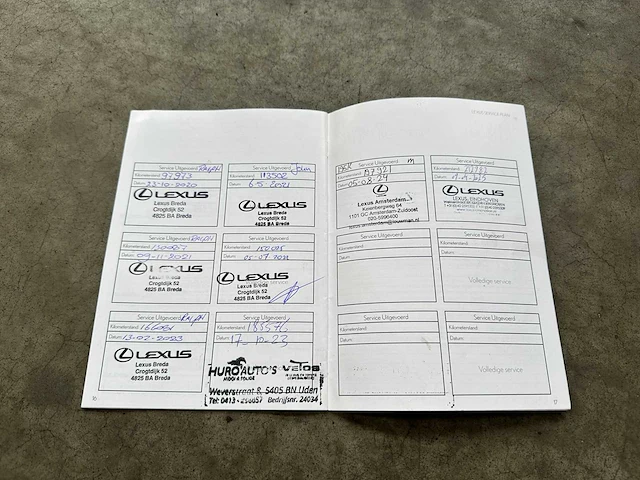 Service Uitgevoerd Ralph
Kilometerstand: 97973
Datum: 23-10-2020
LEXUS
Lexus Breda
Crogtdijk 52
4825 BA Breda
Service Uitgevoerd John
Kilometerstand: 113502
Datum: 6-5-2021
LEXUS
Lexus Breda
Crogtdijk 52
4825 BA Breda
Service Uitgevoerd Ralph
Kilometerstand: 130057
Datum: 09-11-2021
LEXUS
Lexus Breda
Crogtdijk 52
4825 BA Breda
Service Uitgevoerd
Kilometerstand:
Datum: 05-07-2022
LEXUS
Lexus Breda
Crogtdijk 52
4825 BA Breda
Service Uitgevoerd Ralph
Kilometerstand: 166081
Datum: 13-02-2023
LEXUS
Lexus Breda
Crogtdijk 52
4825 BA Breda
Service Uitgevoerd
Kilometerstand:
Datum: 17-10-23
HURO AUTO'S
Weverstraat 8, 5405 BN Uden
Tel: 0413 - 256657 Bedrijfsnr. 24034
16
Service Uitgevoerd
Kilometerstand:
Datum: 05-08-24
Lexus Amsterdam
Kuiperbergweg 64
1101 GC Amsterdam-Zuidoost
020-5990400
Service Uitgevoerd
Kilometerstand:
Datum:
LEXUS
LEXUS EINDHOVEN
Service Uitgevoerd
Kilometerstand:
Datum:
Service Uitgevoerd
Kilometerstand:
Datum:
Volledige service
Service Uitgevoerd
Kilometerstand:
Datum:
Service Uitgevoerd
Kilometerstand:
Datum:
Volledige service
17